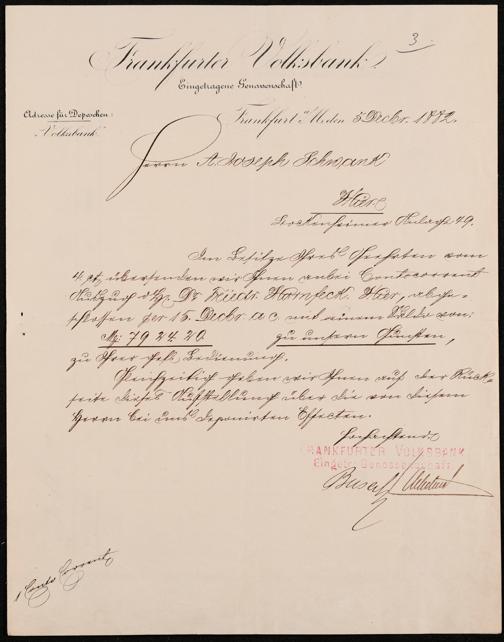 3
Frankfurter Volksbank
Eingetragene Genossenschaft
Adresse für Depeschen:
Volksbank
Frankfurt a/M. den 5 Decbr. 1882.
Herrn A. Joseph Schwank
Hier
Bockenheimer Anlage 49.
Im Besitze Ihres Geehrten vom
4. ct, übersenden wir Ihnen anbei Contocorrent
Auszug d. Hr. Dr. Friedr. Hornfeck. Hier, abge-
schlossen per 15. Decbr. a.c. mit einem Saldo von:
Mk: 7924.20 zu unsern Gunsten,
zu Ihrer gefl. Bedienung.
Gleichzeitig geben wir Ihnen auf der Rück-
seite dieses Aufstellung über die von diesem
Herrn bei uns deponirten Effecten.
Hochachtend
FRANKFURTER VOLKSBANK
Eingetr. Genossenschaft
1 Conto Corrent